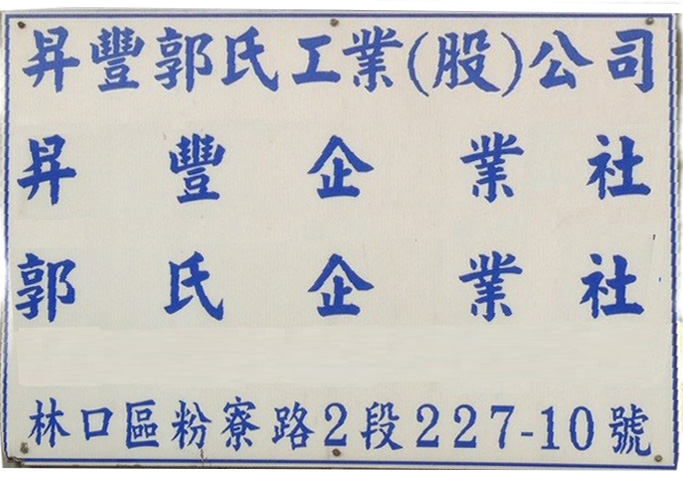 昇豐郭氏工業(股)公司
昇豐企業社
郭氏企業社
林口區粉寮路2段227-10號